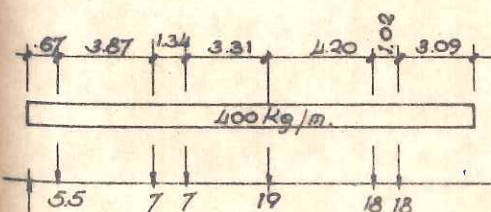 .67 3.87 1.34 3.31 4.20 1.02 3.09
400 Kg/m.
5.5 7 7 19 18 18